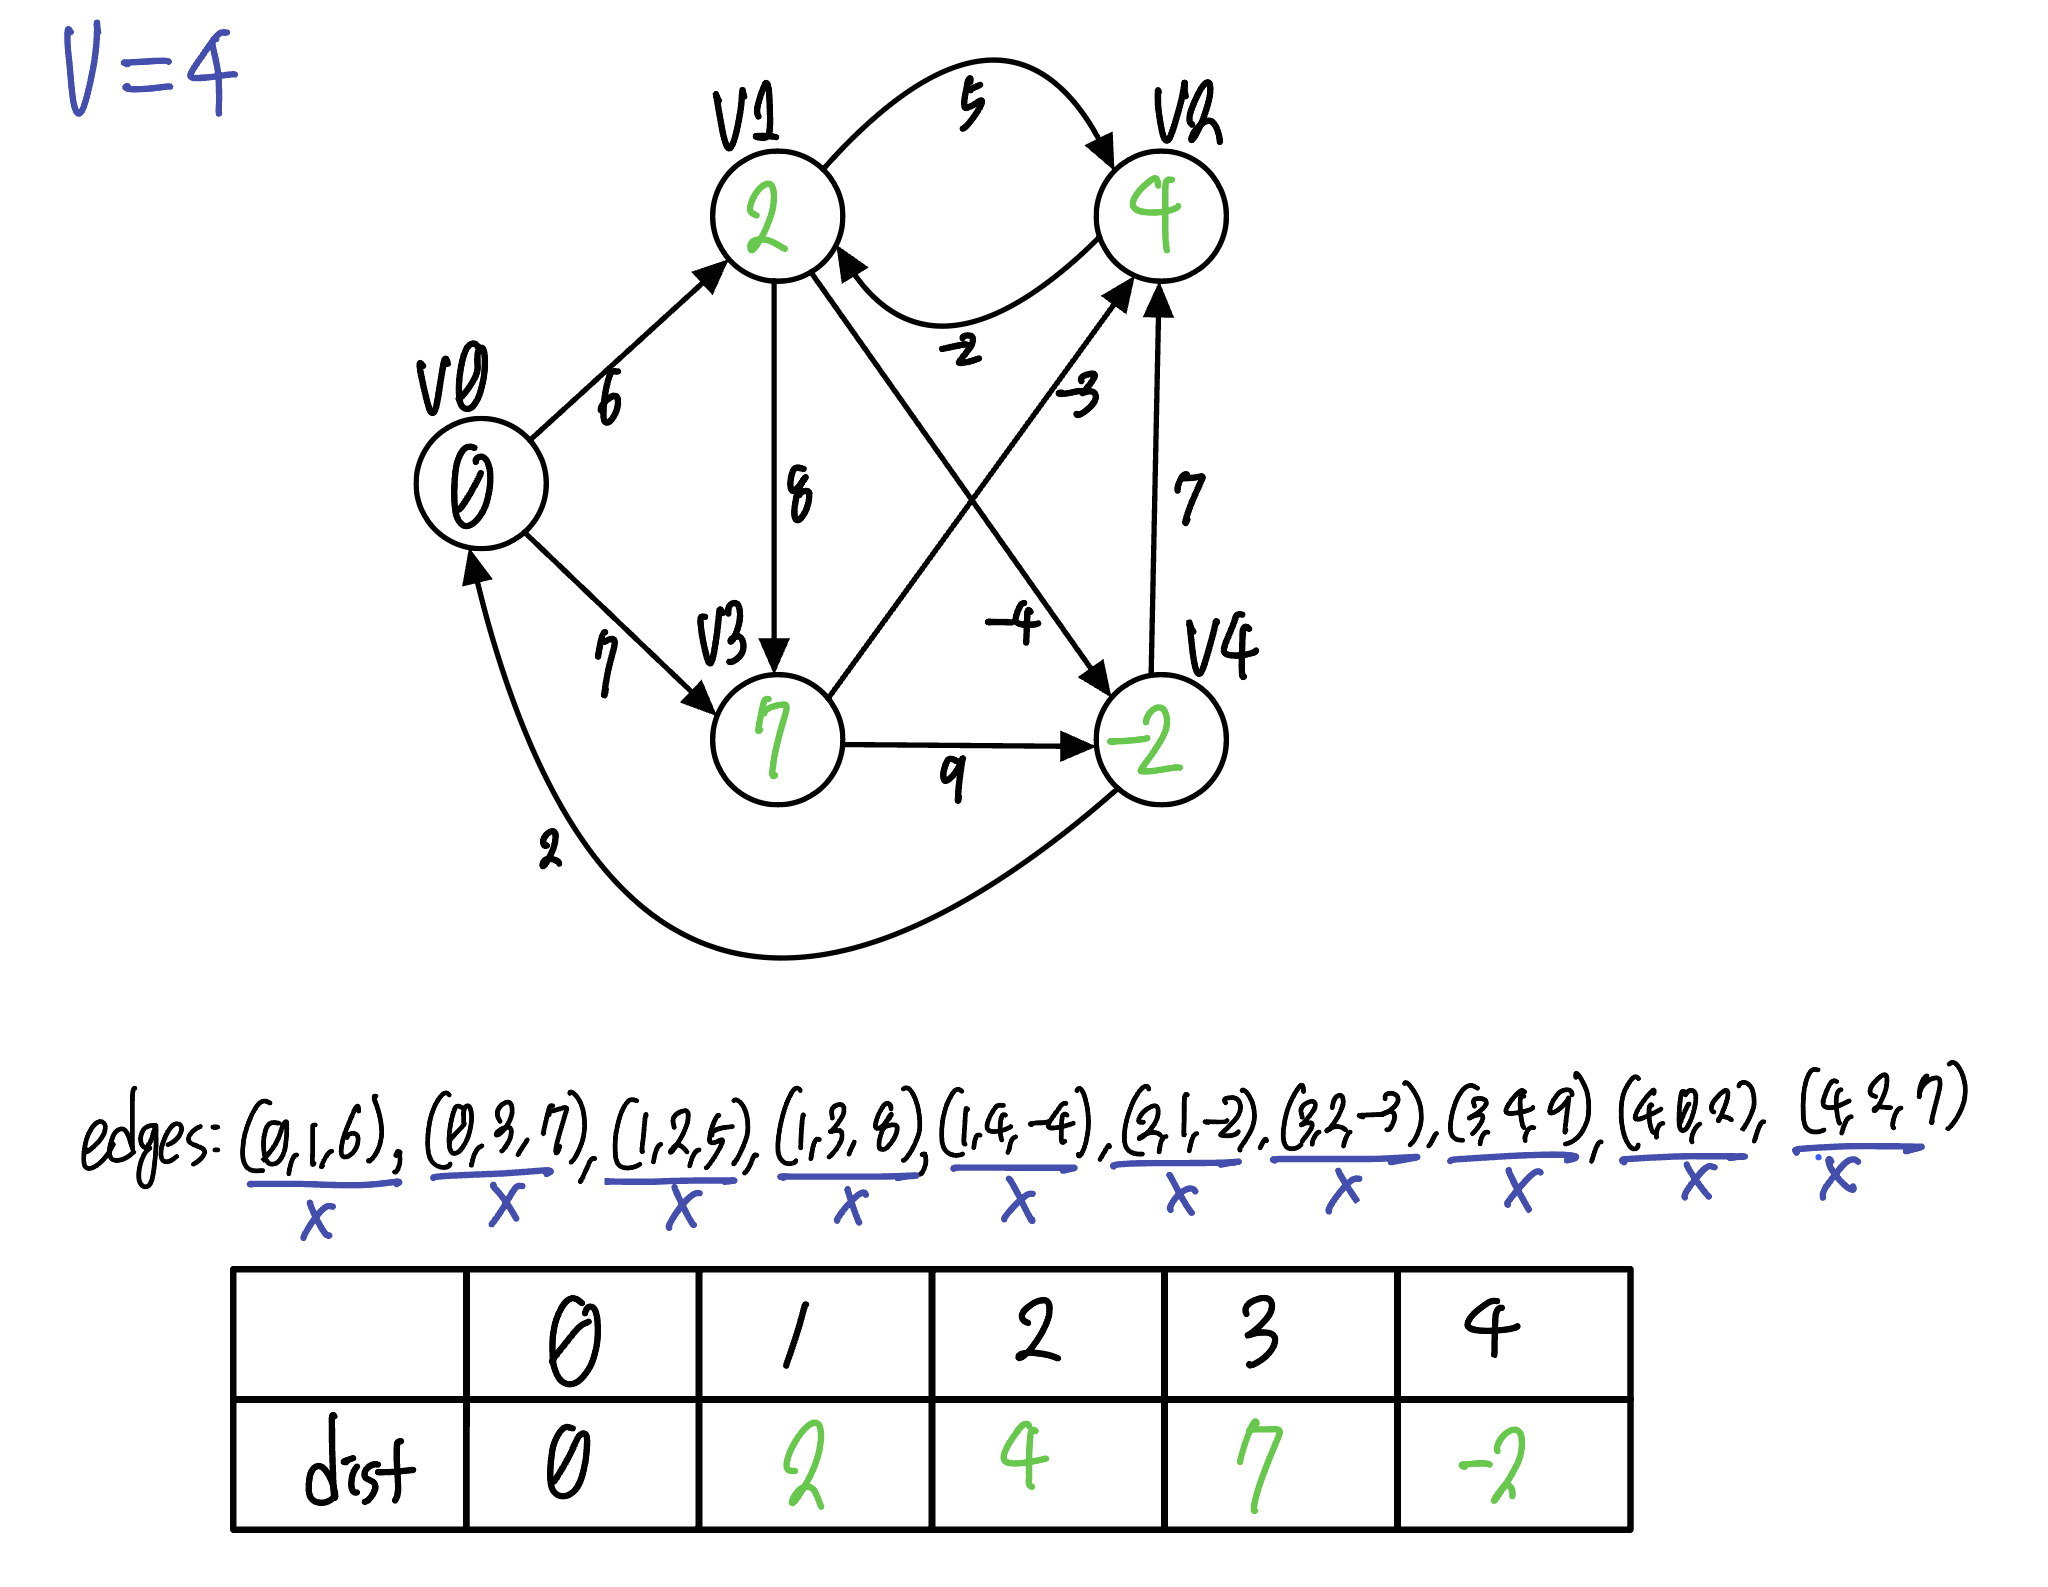 V=4
5
V1
V2
2
4
-2
V0
6
-3
0
8
7
-4
7
V3
V4
7
-2
9
2
edges: (0,1,6), (0,3,7), (1,2,5), (1,3,8), (1,4,-4), (2,1,-2), (3,2,-3), (3,4,9), (4,0,2), (4,2,7)
x x x x x x x x x x
0 1 2 3 4
dist 0 2 4 7 -2